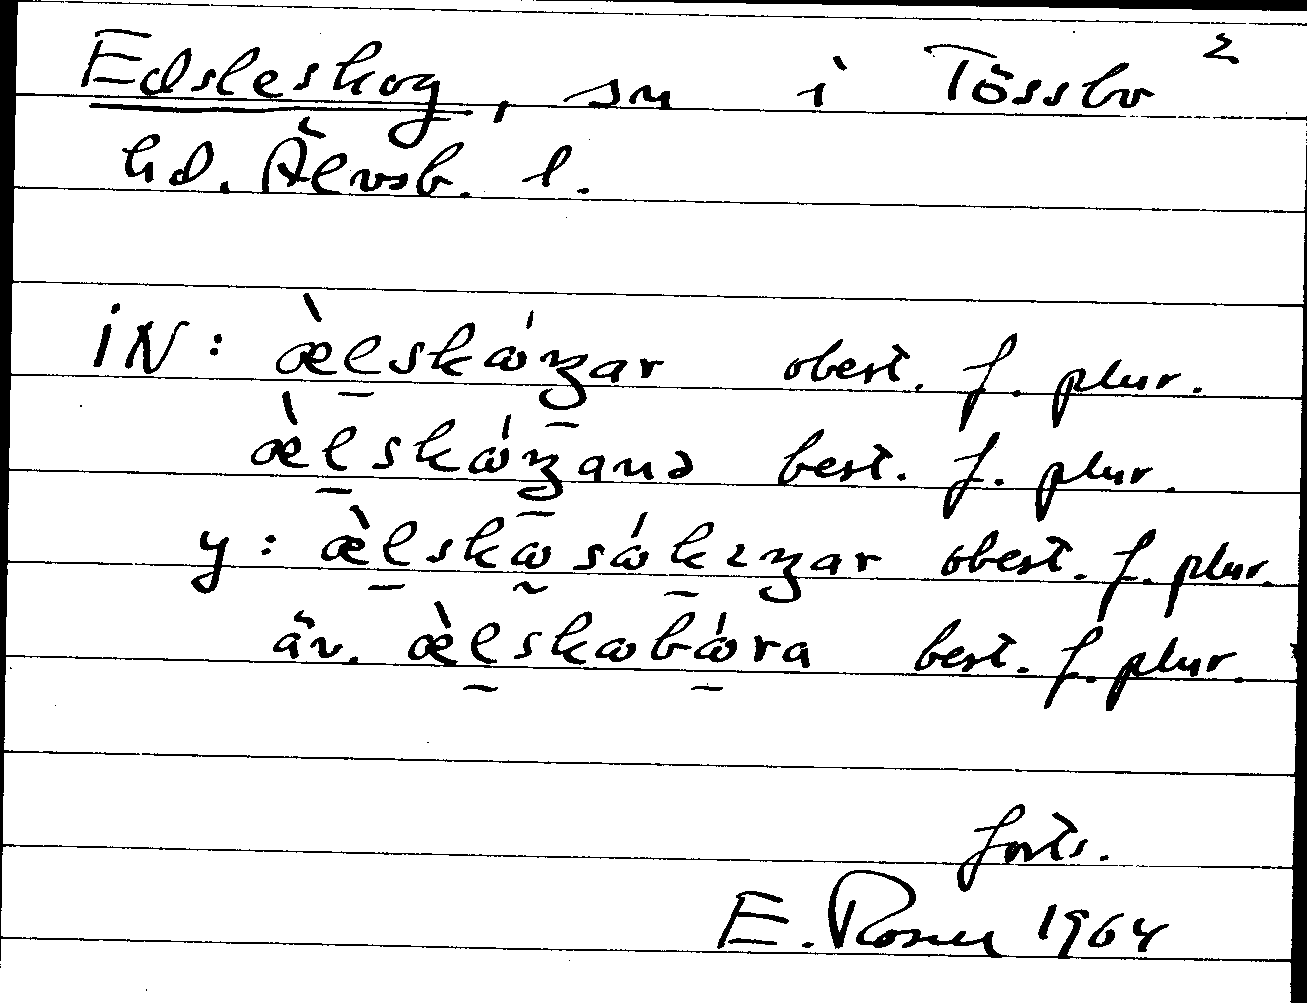 2
Edsleskog, sn i Tössbo
hd. Älvsb. l.
iN: æ̀l̠skώʒ̠ar obest. f. plur.
æ̀l̠skώʒ̠anə best. f. plur.
y: æ̀l̠skω̰sώk̠ɪʒar obest. f. plur.
äv. æ̀l̠skωbώ̠ra best. f. plur.
forts.
E. Rosell 1964